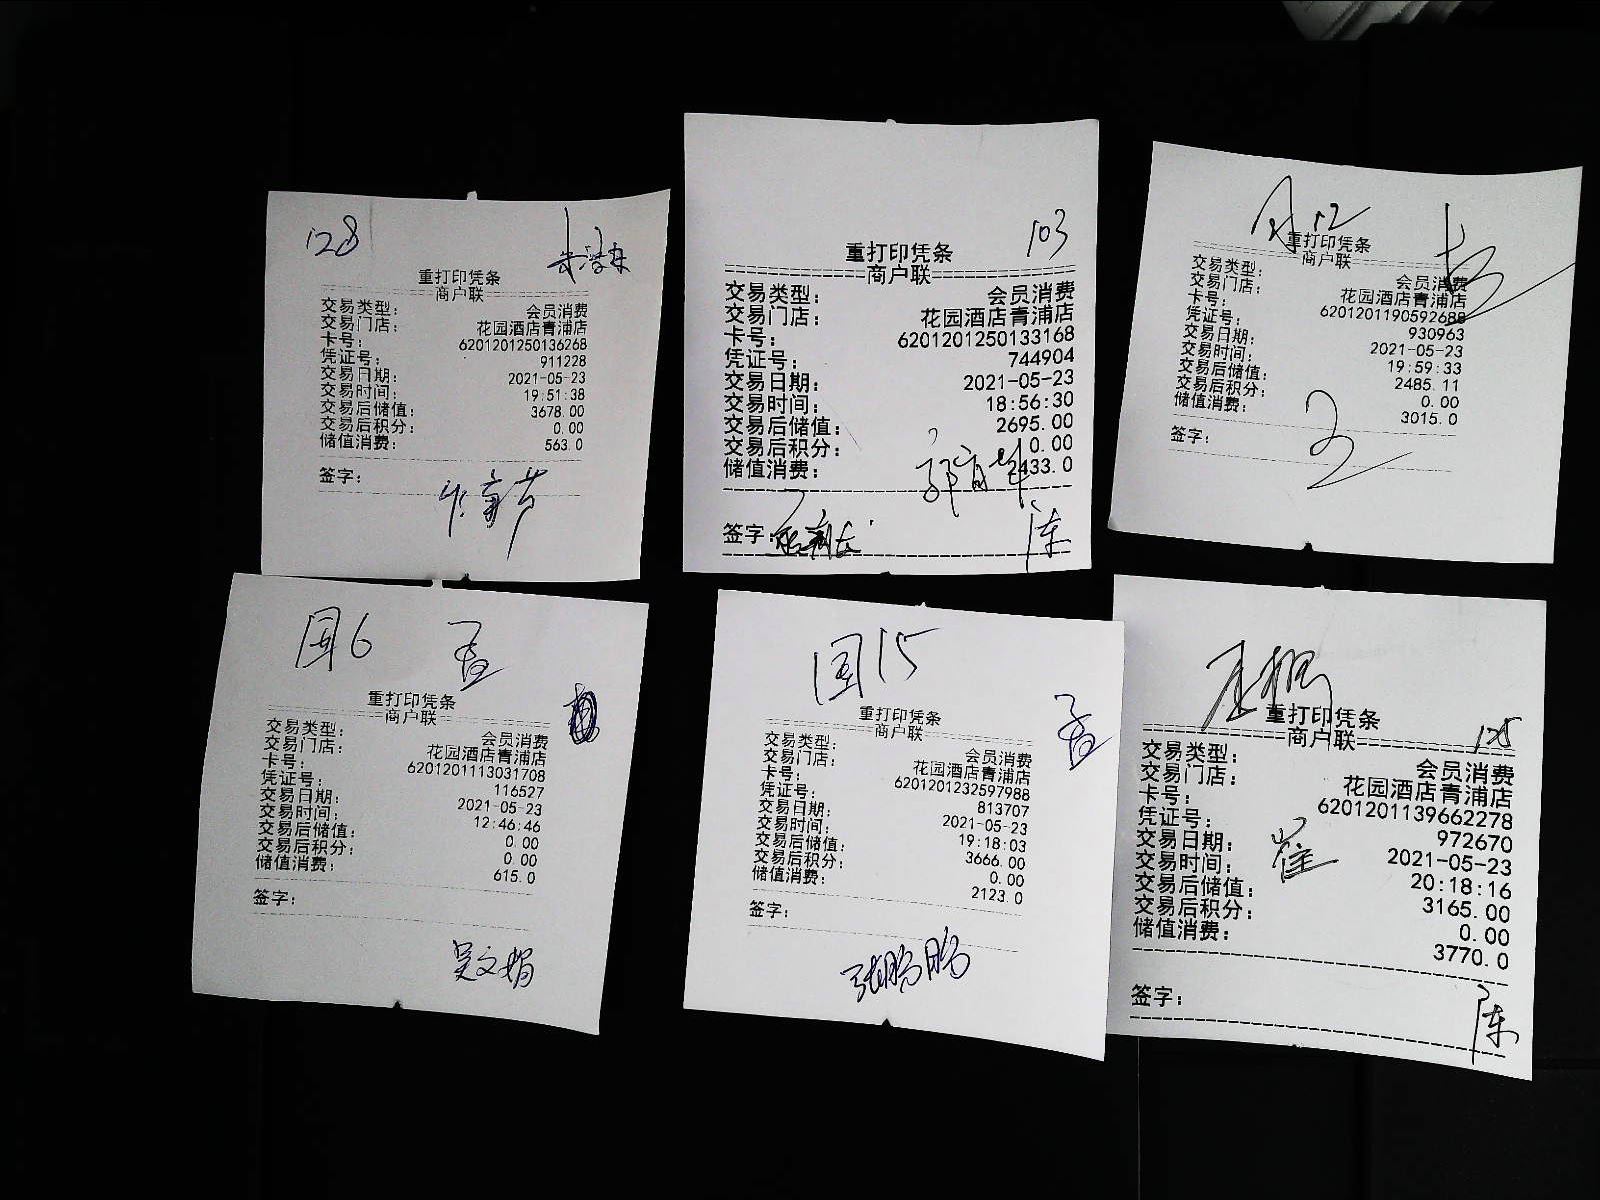 128
重打印凭条
商户联
交易类型: 会员消费
交易门店: 花园酒店青浦店
卡号: 6201201250136268
凭证号: 911228
交易日期: 2021-05-23
交易时间: 19:51:38
交易后储值: 3678.00
交易后积分: 0.00
储值消费: 563.0
签字:
103
重打印凭条
商户联
交易类型: 会员消费
交易门店: 花园酒店青浦店
卡号: 6201201250133168
凭证号: 744904
交易日期: 2021-05-23
交易时间: 18:56:30
交易后储值: 2695.00
交易后积分: 0.00
储值消费: 2433.0
签字:
陈
重打印凭条
商户联
交易类型: 会员消费
交易门店: 花园酒店青浦店
卡号: 6201201190592688
凭证号: 930963
交易日期: 2021-05-23
交易时间: 19:59:33
交易后储值: 2485.11
交易后积分: 0.00
储值消费: 3015.0
签字:
国6 孟
重打印凭条
商户联
交易类型: 会员消费
交易门店: 花园酒店青浦店
卡号: 6201201113031708
凭证号: 116527
交易日期: 2021-05-23
交易时间: 12:46:46
交易后储值: 0.00
交易后积分: 0.00
储值消费: 615.0
签字:
吴文娟
国15
孟
重打印凭条
商户联
交易类型: 会员消费
交易门店: 花园酒店青浦店
卡号: 6201201232597988
凭证号: 813707
交易日期: 2021-05-23
交易时间: 19:18:03
交易后储值: 3666.00
交易后积分: 0.00
储值消费: 2123.0
签字:
张鹏鹏
重打印凭条
125
商户联
交易类型: 会员消费
交易门店: 花园酒店青浦店
卡号: 6201201139662278
凭证号: 972670
交易日期: 2021-05-23
交易时间: 20:18:16
崔
交易后储值: 3165.00
交易后积分: 0.00
储值消费: 3770.0
签字:
陈